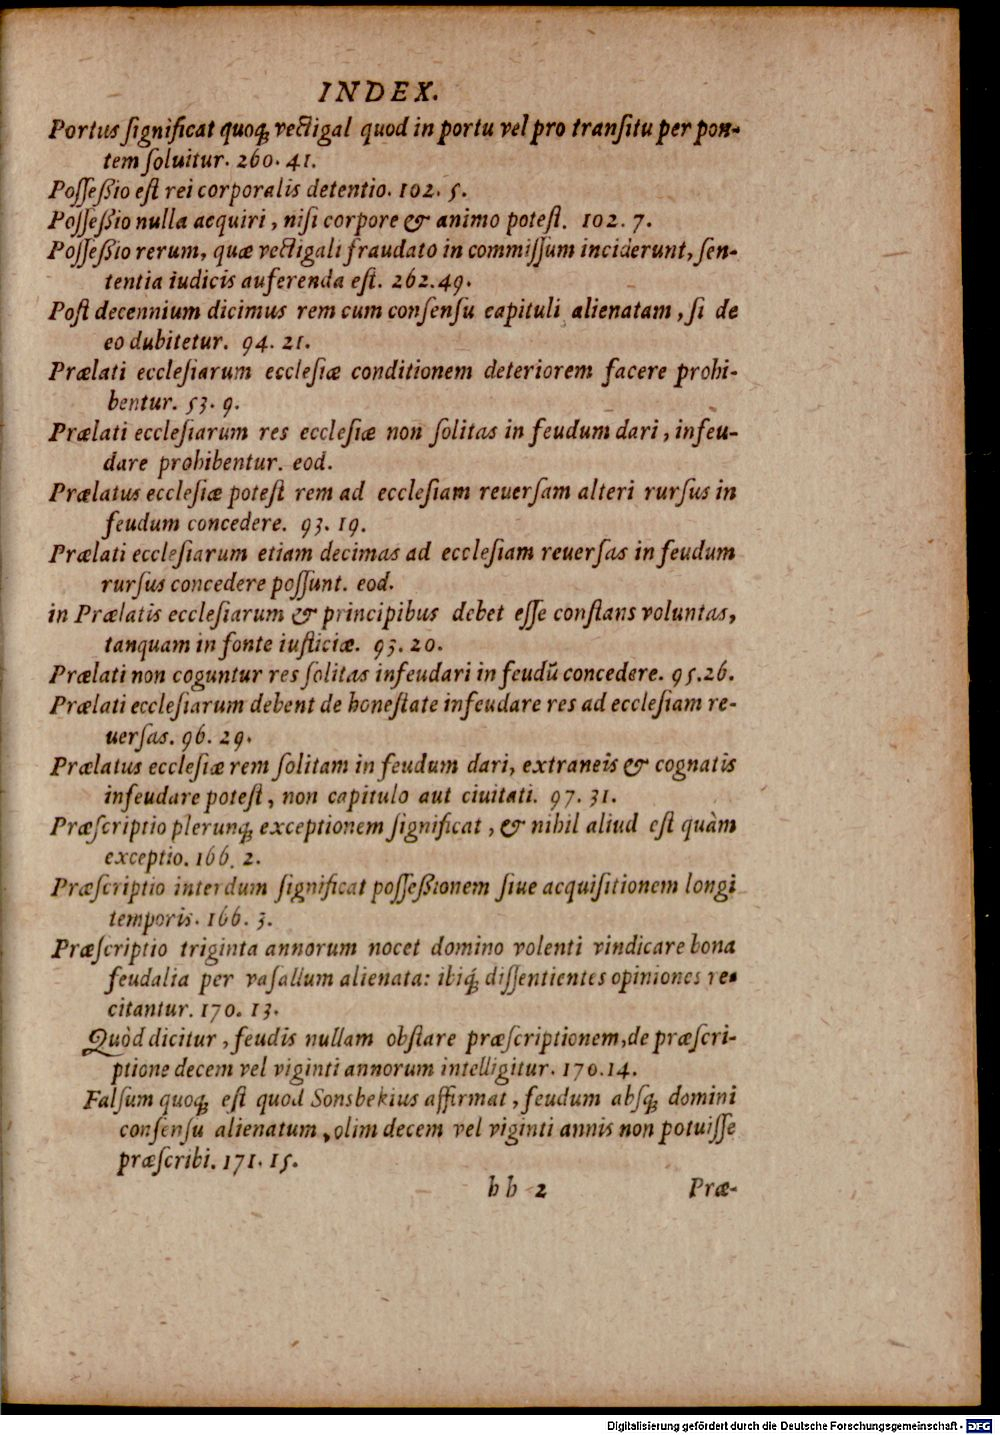 INDEX.
Portus ſignificat quoq; vectigal quod in portu vel pro tranſitu per pon-
tem ſoluitur. 260. 41.
Poſſeßio eſt rei corporalis detentio. 102. 5.
Poſſeßio nulla acquiri, niſi corpore & animo poteſt. 102. 7.
Poſſeßio rerum, quæ vectigali fraudato in commiſſum inciderunt, ſen-
tentia iudicis auferenda eſt. 262.49.
Poſt decennium dicimus rem cum conſenſu capituli alienatam, ſi de
eo dubitetur. 94. 21.
Prælati eccleſiarum eccleſiæ conditionem deteriorem facere prohi-
bentur. 53. 9.
Prælati eccleſiarum res eccleſiæ non ſolitas in feudum dari, infeu-
dare prohibentur. eod.
Prælatus eccleſiæ poteſt rem ad eccleſiam reuerſam alteri rurſus in
feudum concedere. 93. 19.
Prælati eccleſiarum etiam decimas ad eccleſiam reuerſas in feudum
rurſus concedere poſſunt. eod.
in Prælatis eccleſiarum & principibus debet eſſe conſtans voluntas,
tanquam in fonte iuſticiæ. 93. 20.
Prælati non coguntur res ſolitas infeudari in feudū concedere. 95.26.
Prælati eccleſiarum debent de honeſtate infeudare res ad eccleſiam re-
uerſas. 96. 29.
Prælatus eccleſiæ rem ſolitam in feudum dari, extraneis & cognatis
infeudare poteſt, non capitulo aut ciuitati. 97. 31.
Præſcriptio plerunq; exceptionem ſignificat, & nihil aliud eſt quàm
exceptio. 166. 2.
Præſcriptio interdum ſignificat poſſeßionem ſiue acquiſitionem longi
temporis. 166. 3.
Præſcriptio triginta annorum nocet domino volenti vindicare bona
feudalia per vaſallum alienata: ibiq; diſſentientes opiniones re-
citantur. 170. 13.
Quòd dicitur, feudis nullam obſtare præſcriptionem, de præſcri-
ptione decem vel viginti annorum intelligitur. 170.14.
Falſum quoq; eſt quod Sonsbekius affirmat, feudum abſq; domini
conſenſu alienatum, olim decem vel viginti annis non potuiſſe
præſcribi. 171. 15.
bb 2 Præ-
Digitalisierung gefördert durch die Deutsche Forschungsgemeinschaft - DFG